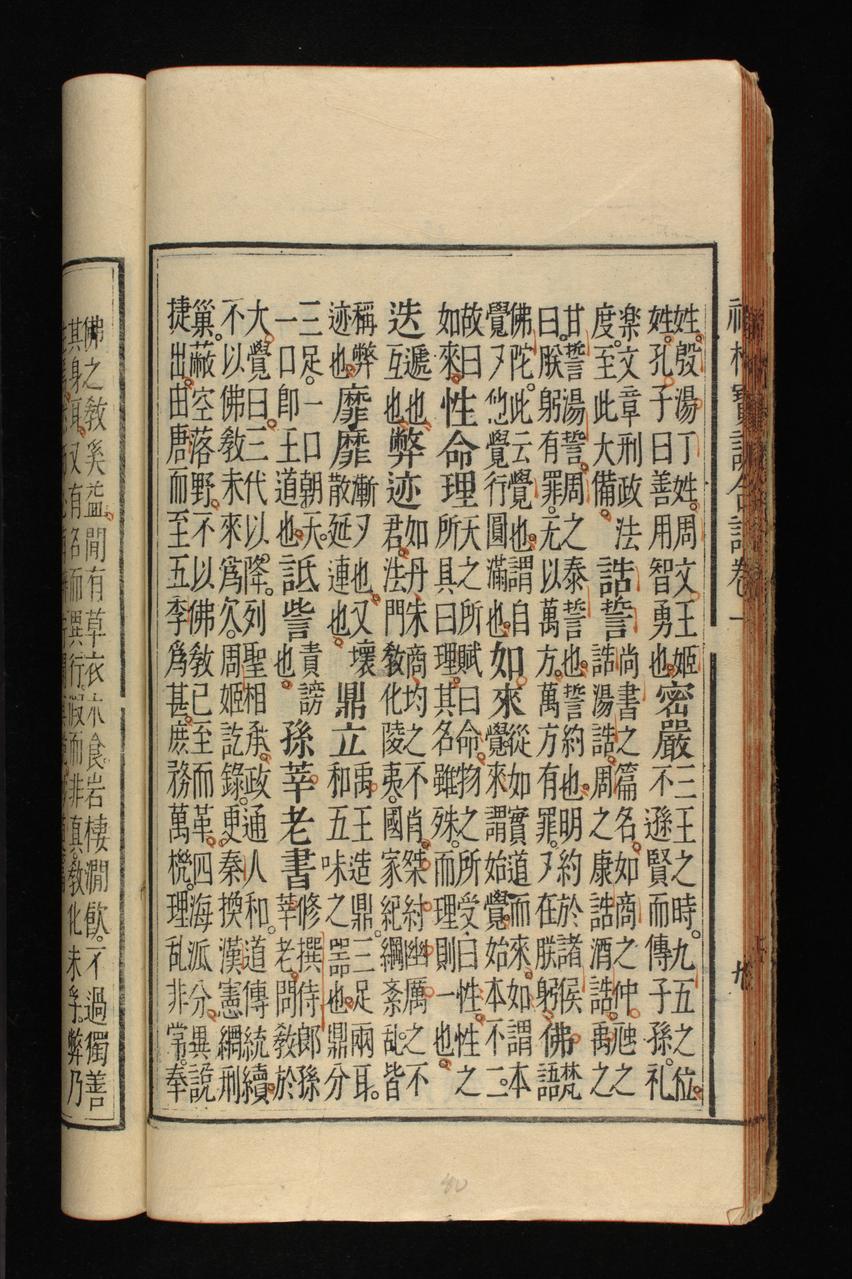 禅林寶訓合註卷一
九
姓殷湯丁姓周文王姬
姓孔子曰善用智勇也
密嚴
三王之時九五之位
不遜賢而傳子孫礼
楽文章刑政法
度至此大備
誥誓
尚書之篇名如商之仲虺之
誥湯誥周之康誥酒誥禹之
甘誓湯誓周之泰誓也誓約也明約於諸侯
曰朕躬有罪无以萬方萬方有罪ヌ在朕躬
佛
梵
語
佛陀此云覺也謂自
覺ヌ他覺行圓滿也
如來
從如實道而來如謂本
覺來謂始覺始本不二
故曰
如來
性命理
天之所賦曰命物之所受曰性性之
所具曰理其名雖殊而理則一也
迭
遞也
互也
弊迹
如丹朱商均之不肖桀紂幽厲之不
君法門教化陵夷國家紀綱紊乱皆
稱弊
迹也
靡靡
漸ヌ也又壞
散延連也
鼎立
禹王造鼎三足兩耳
和五味之噐也鼎分
三足一口朝天
一口即王道也
詆訾
責謗
也
孫莘老書
修撰侍郎孫
莘老問教於
大覺曰三代以降列聖相承政通人和道傳統續
不以佛教未來為欠周姬訖錄更秦換漢憲網刑
巢蔽空落野不以佛教已至而革四海派分異説
捷出由唐而至五季為甚庶務萬機理乱非常奉
佛之教奚益間有草衣木食岩棲澗飲不過獨善
其身耳又有名而行假而非真教化未孚弊乃